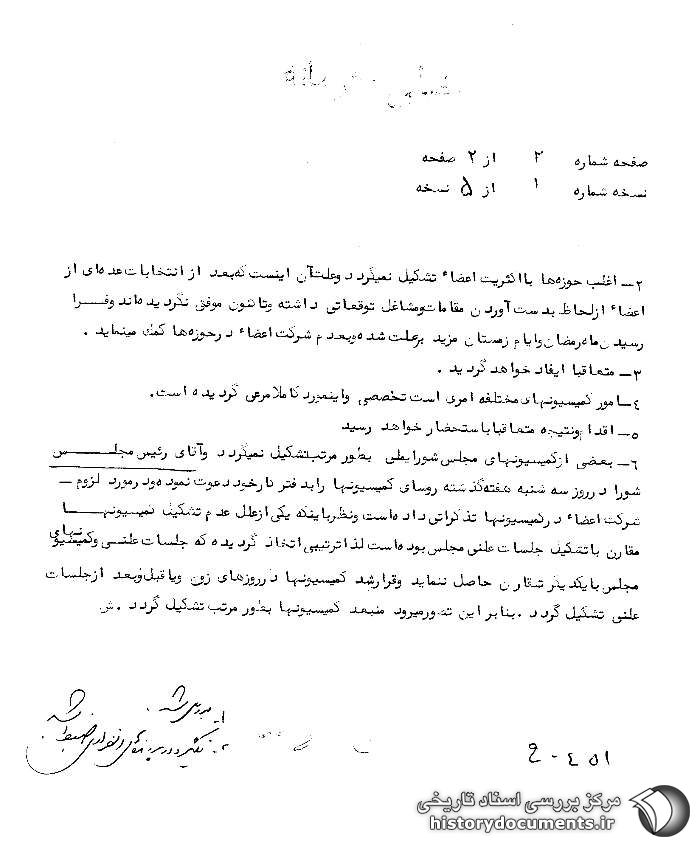 صفحه شماره ۲ از ۲ صفحه
نسخه شماره ۱ از ۵ نسخه
۲- اغلب حوزه‌ها با اکثریت اعضاء تشکیل نمیگردد و علت آن اینست که بعد از انتخابات عده‌ای از
اعضاء از لحاظ بدست آوردن مقامات و مشاغل توقعاتی داشته و تاکنون موفق نگردیده‌اند و فرا
رسیدن ماه رمضان و ایام زمستان مزید بر علت شده و بعدم شرکت اعضاء در حوزه‌ها کمک مینماید .
۳- متعاقبا ایفاد خواهد گردید .
٤- امور کمیسیونهای مختلفه امری است تخصصی و اینمورد کاملا مرعی گردیده است.
۵- اقدام و نتیجه متعاقبا باستحضار خواهد رسید
۶- بعضی از کمیسیونهای مجلس شورایملی بطور مرتب تشکیل نمیگردد و آقای رئیس مجلس
شورا در روز سه شنبه هفته گذشته روسای کمیسیونها را بدفتر کار خود دعوت نموده و در مورد لزوم -
شرکت اعضاء در کمیسیونها تذکراتی داده است و نظر باینکه یکی از علل عدم تشکیل کمیسیونها
مقارن با تشکیل جلسات علنی مجلس بوده است لذا ترتیبی اتخاذ گردیده که جلسات علنی و کمیسیونهای
مجلس با یکدیگر تقارن حاصل ننماید و قرار شد کمیسیونها در روزهای زوج و یا قبل و بعد از جلسات
علنی تشکیل گردد . بنابر این تصور میرود منبعد کمیسیونها بطور مرتب تشکیل گردد . ش
٤٥١ - ۶
مرکز بررسی اسناد تاریخی
historydocuments.ir